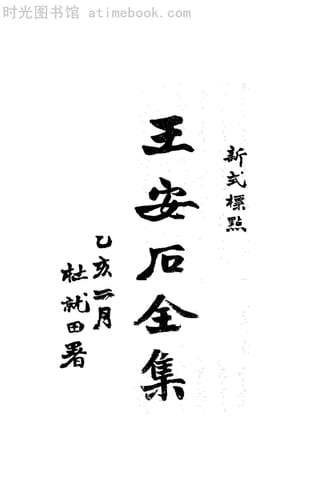 时光图书馆 atimebook.com
新式標點
王安石全集
乙亥二月
杜就田署